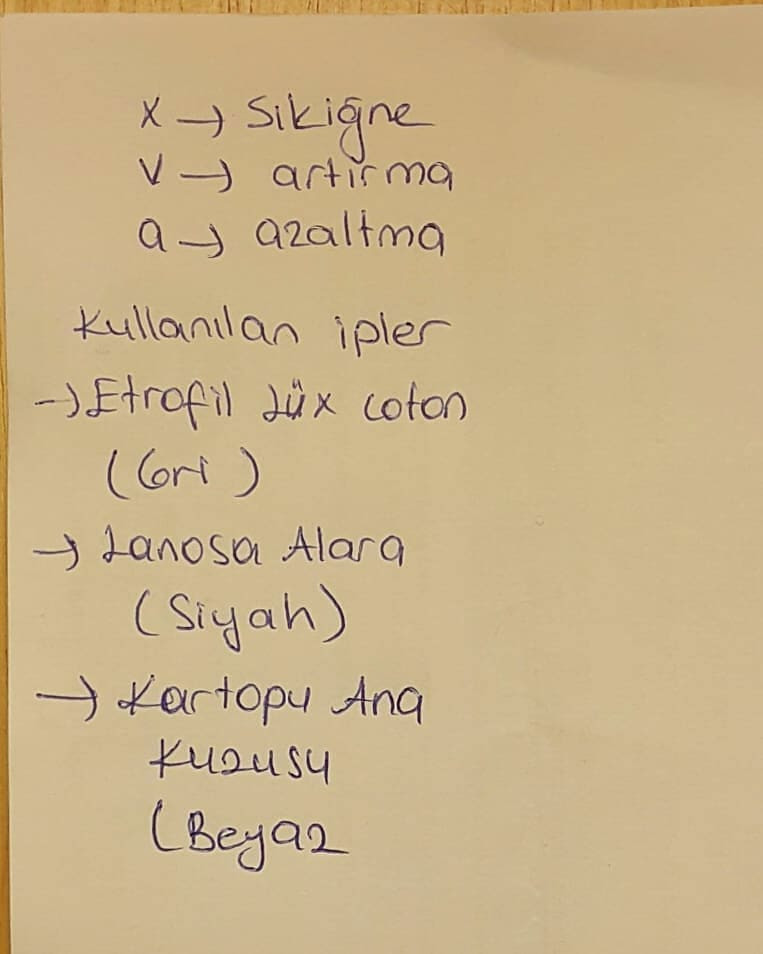 x → Sıkiğne
v → artırma
a → azaltma
Kullanılan ipler
→ Etrofil Lüx coton
(Gri)
→ Lanosa Alara
(Siyah)
→ Kartopu Ana
Kuzusu
(Beyaz